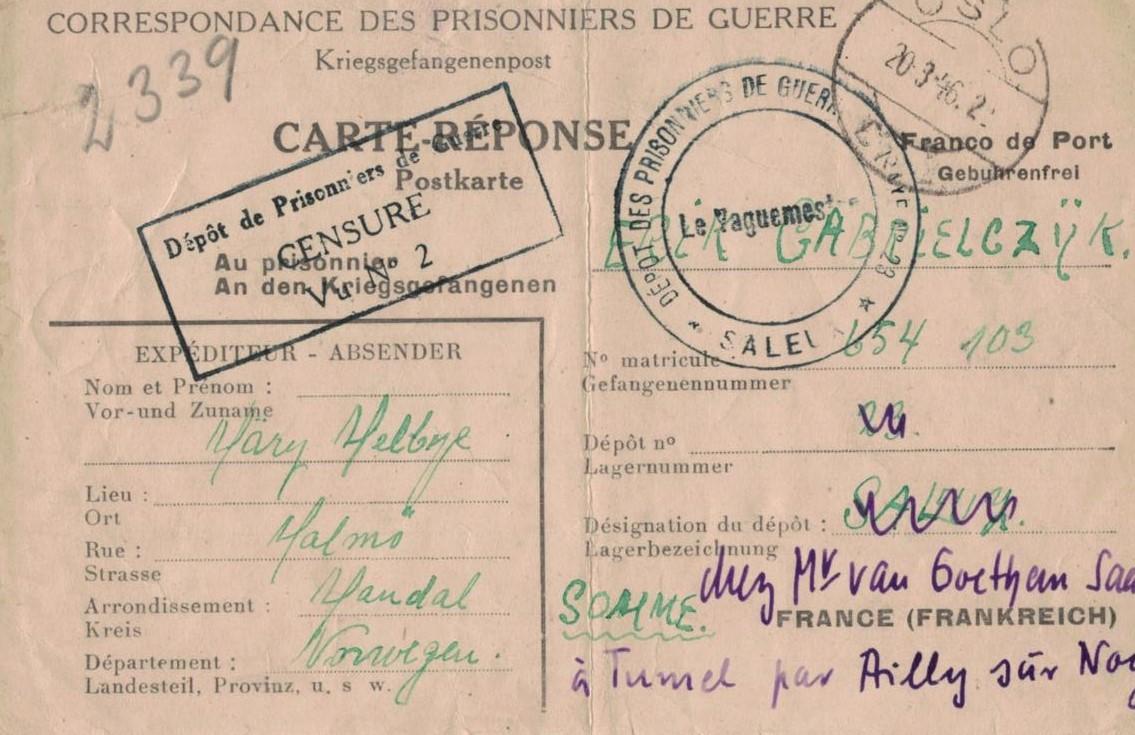 CORRESPONDANCE DES PRISONNIERS DE GUERRE
Kriegsgefangenenpost
2339
CARTE-RÉPONSE
Postkarte
Dépôt de Prisonniers de Guerre
CENSURE
Vu N° 2
Au prisonnier
An den Kriegsgefangenen
OSLO
20.3.46.2
DÉPÔT DES PRISONNIERS DE GUERRE N° 23
Le Vaguemestre
SALEU
Franco de Port
Gebührenfrei
GABRIELCZŸK.
EXPÉDITEUR - ABSENDER
Nom et Prénom :
Vor-und Zuname
Lieu :
Ort
Rue : Malmö
Strasse
Arrondissement : Mandal
Kreis
Département : Norwegen.
Landesteil, Provinz, u. s w.
N° matricule 654 103
Gefangenennummer
Dépôt n°
Lagernummer
Désignation du dépôt :
Lagerbezeichnung
SOMME. chez Mr van
FRANCE (FRANKREICH)
à Tunnel par Ailly sur